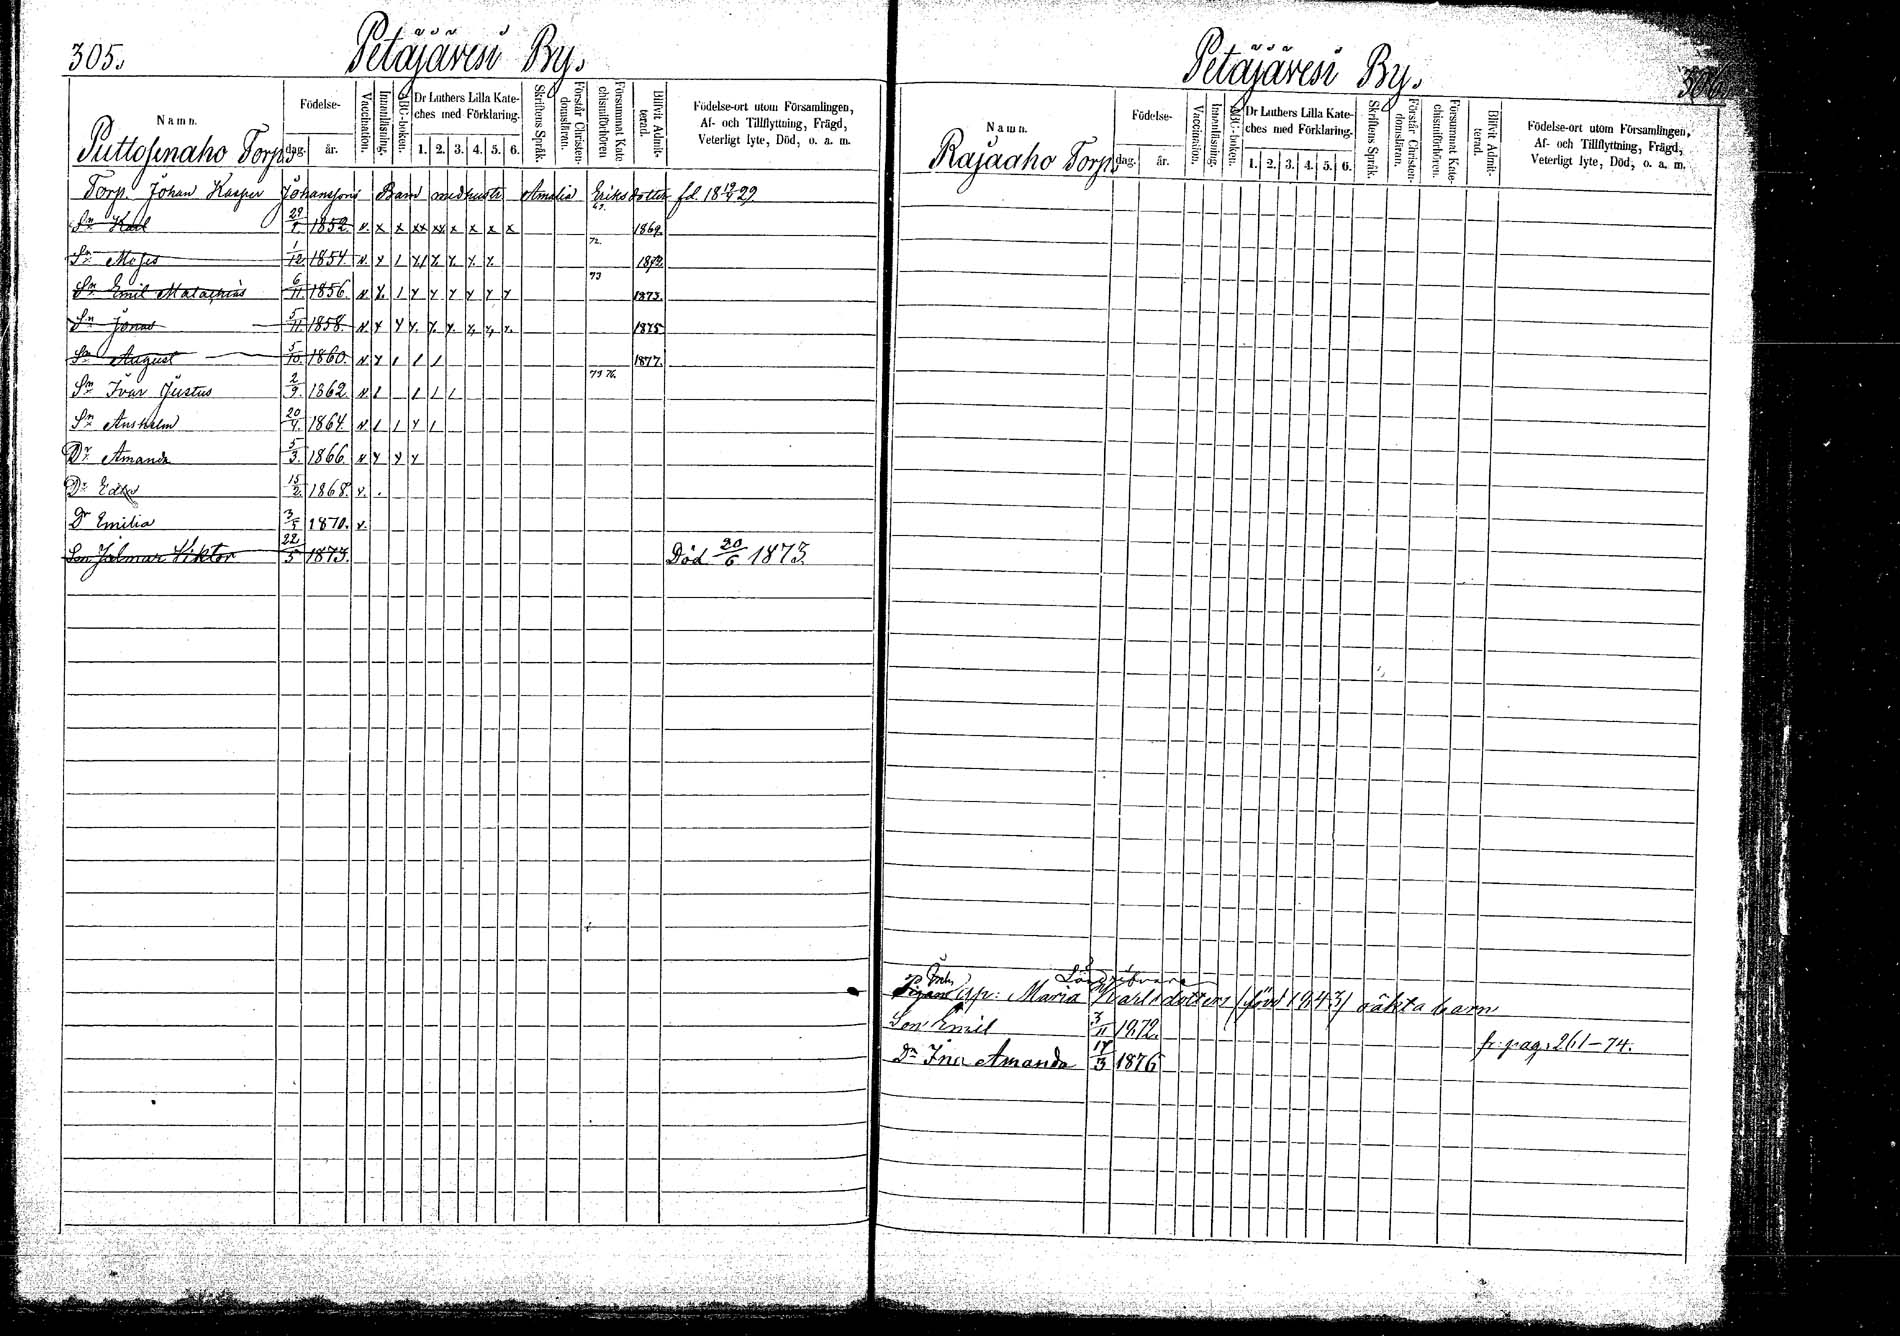 305.
Petäjävesi By.
Namn.
Puttosenaho Torp
Födelse-
dag.
år.
Vaccination.
Innanläsning.
ABC-boken.
Dr Luthers Lilla Kate-
ches med Förklaring.
1. 2. 3. 4. 5. 6.
Skriftens Språk.
Förstår Christen-
domsläran.
Försummat Kate
chismiförhören
Blifvit Admit-
terad.
Födelse-ort utom Församlingen,
Af- och Tillflyttning, Frägd,
Veterligt lyte, Död, o. a. m.
Torp. Johan Kasper Johanssons Barn med hustr Amalia Eriksdotter fd. 18 19/4 29
Sn Karl 29/7. 1852. v. x x xx xx x x x x 69. 1869.
Sn Moses 1/12 1854. v. x 1 x1 x x x x 72. 1872.
Sn Emil Matathias 6/11. 1856. v. x 1 x x x x x x 73 1873.
Sn Jonas 5/11. 1858. v. x x x. x. x. x, x, x. 1875
Sn August 5/10. 1860. v. x 1 1 1 1877.
Sn Ivar Justus 2/9. 1862. v. 1 1 1 1 75 76.
Sn Anshelm 20/4. 1864 v. 1 1 x 1
Dr Amanda 5/3. 1866. v x x x
Dr Edla 15/2. 1868. v. .
Dr Emilia 3/5 1870. v.
Son Jalmar Viktor 22/5 1873. Död 20/6 1873.
Petäjävesi By.
306.
Namn.
Rajaaho Torp
Födelse-
dag.
år.
Vaccination.
Innanläsning.
ABC-boken.
Dr Luthers Lilla Kate-
ches med Förklaring.
1. 2. 3. 4. 5. 6.
Skriftens Språk.
Förstår Christen-
domsläran.
Försummat Kate-
chismiförhören.
Blifvit Admit-
terad.
Födelse-ort utom Församlingen,
Af- och Tillflyttning, Frägd,
Veterligt lyte, Död, o. a. m.
Maria Karlsdotters (född 1843) oäkta barn
Son Emil 3/11 1872. fr: pag. 261-74.
Dr Ina Amanda 17/3 1876